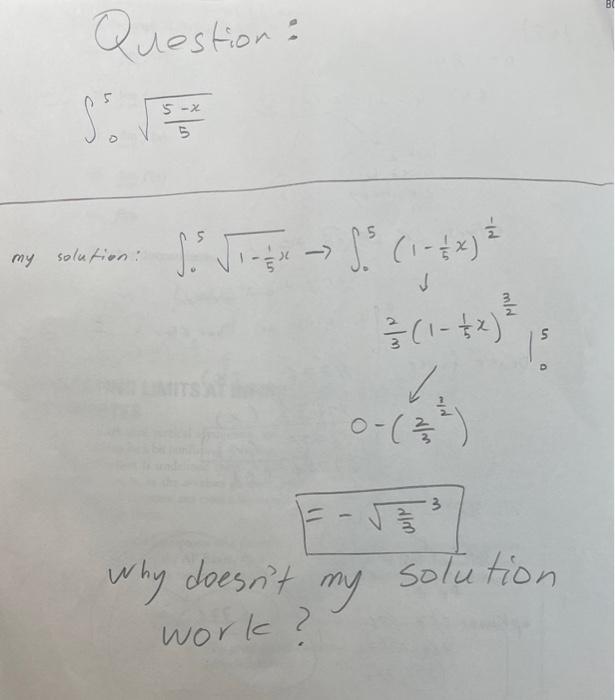 Question:
∫₀⁵ √((5-x)/5)
my solution: ∫₀⁵ √(1-⅕x) → ∫₀⁵ (1-⅕x)^(1/2)
↓
⅔(1-⅕x)^(3/2) |₀⁵
↙
0-(⅔^(3/2))
= - √(⅔)³
Why doesn't my solution
work?